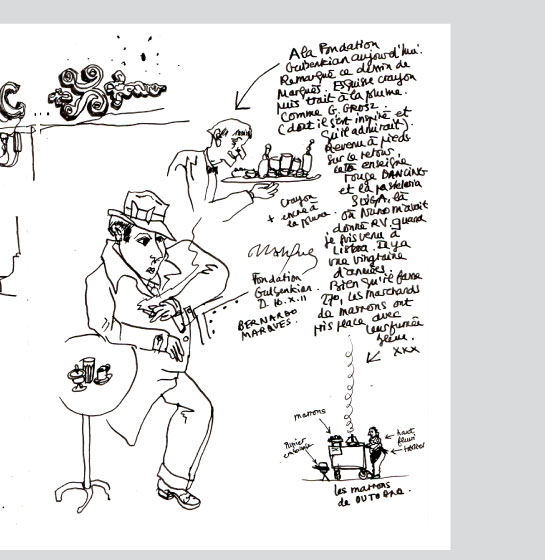 A la Fondation
Gulbenkian aujourd'hui.
Remarqué ce dessin de
Marqués. Esquisse crayon
puis trait à la plume.
Comme G. GROSZ.
(dont il s'est inspiré et
qu'il admirait).
Revenu à pieds
sur ce retour,
cette enseigne
rouge DANCING
et la pastelaria
SUIÇA, là
où Nuno m'avait
donné RV quand
je suis venu à
Lisboa. Il y a
une vingtaine
d'années.
Bien qu'il fasse
270, les marchands
de marrons ont
pris place avec
leur fumée
bleue.
xxx
crayon
+ encre à
la plume.
Fondation
Gulbenkian.
D. 16.X.11
BERNARDO
MARQUES.
C
marrons
papier
haut
fleuri
les marrons
de OUTONO.